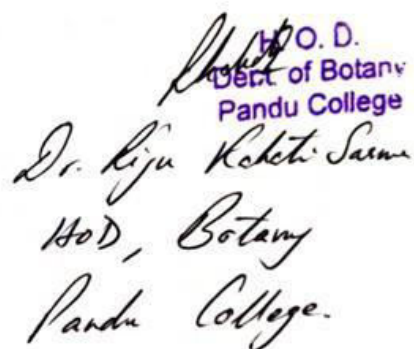 H. O. D.
Dept. of Botany
Pandu College
Dr. Riju Kakati Sarma
HOD, Botany
Pandu College.